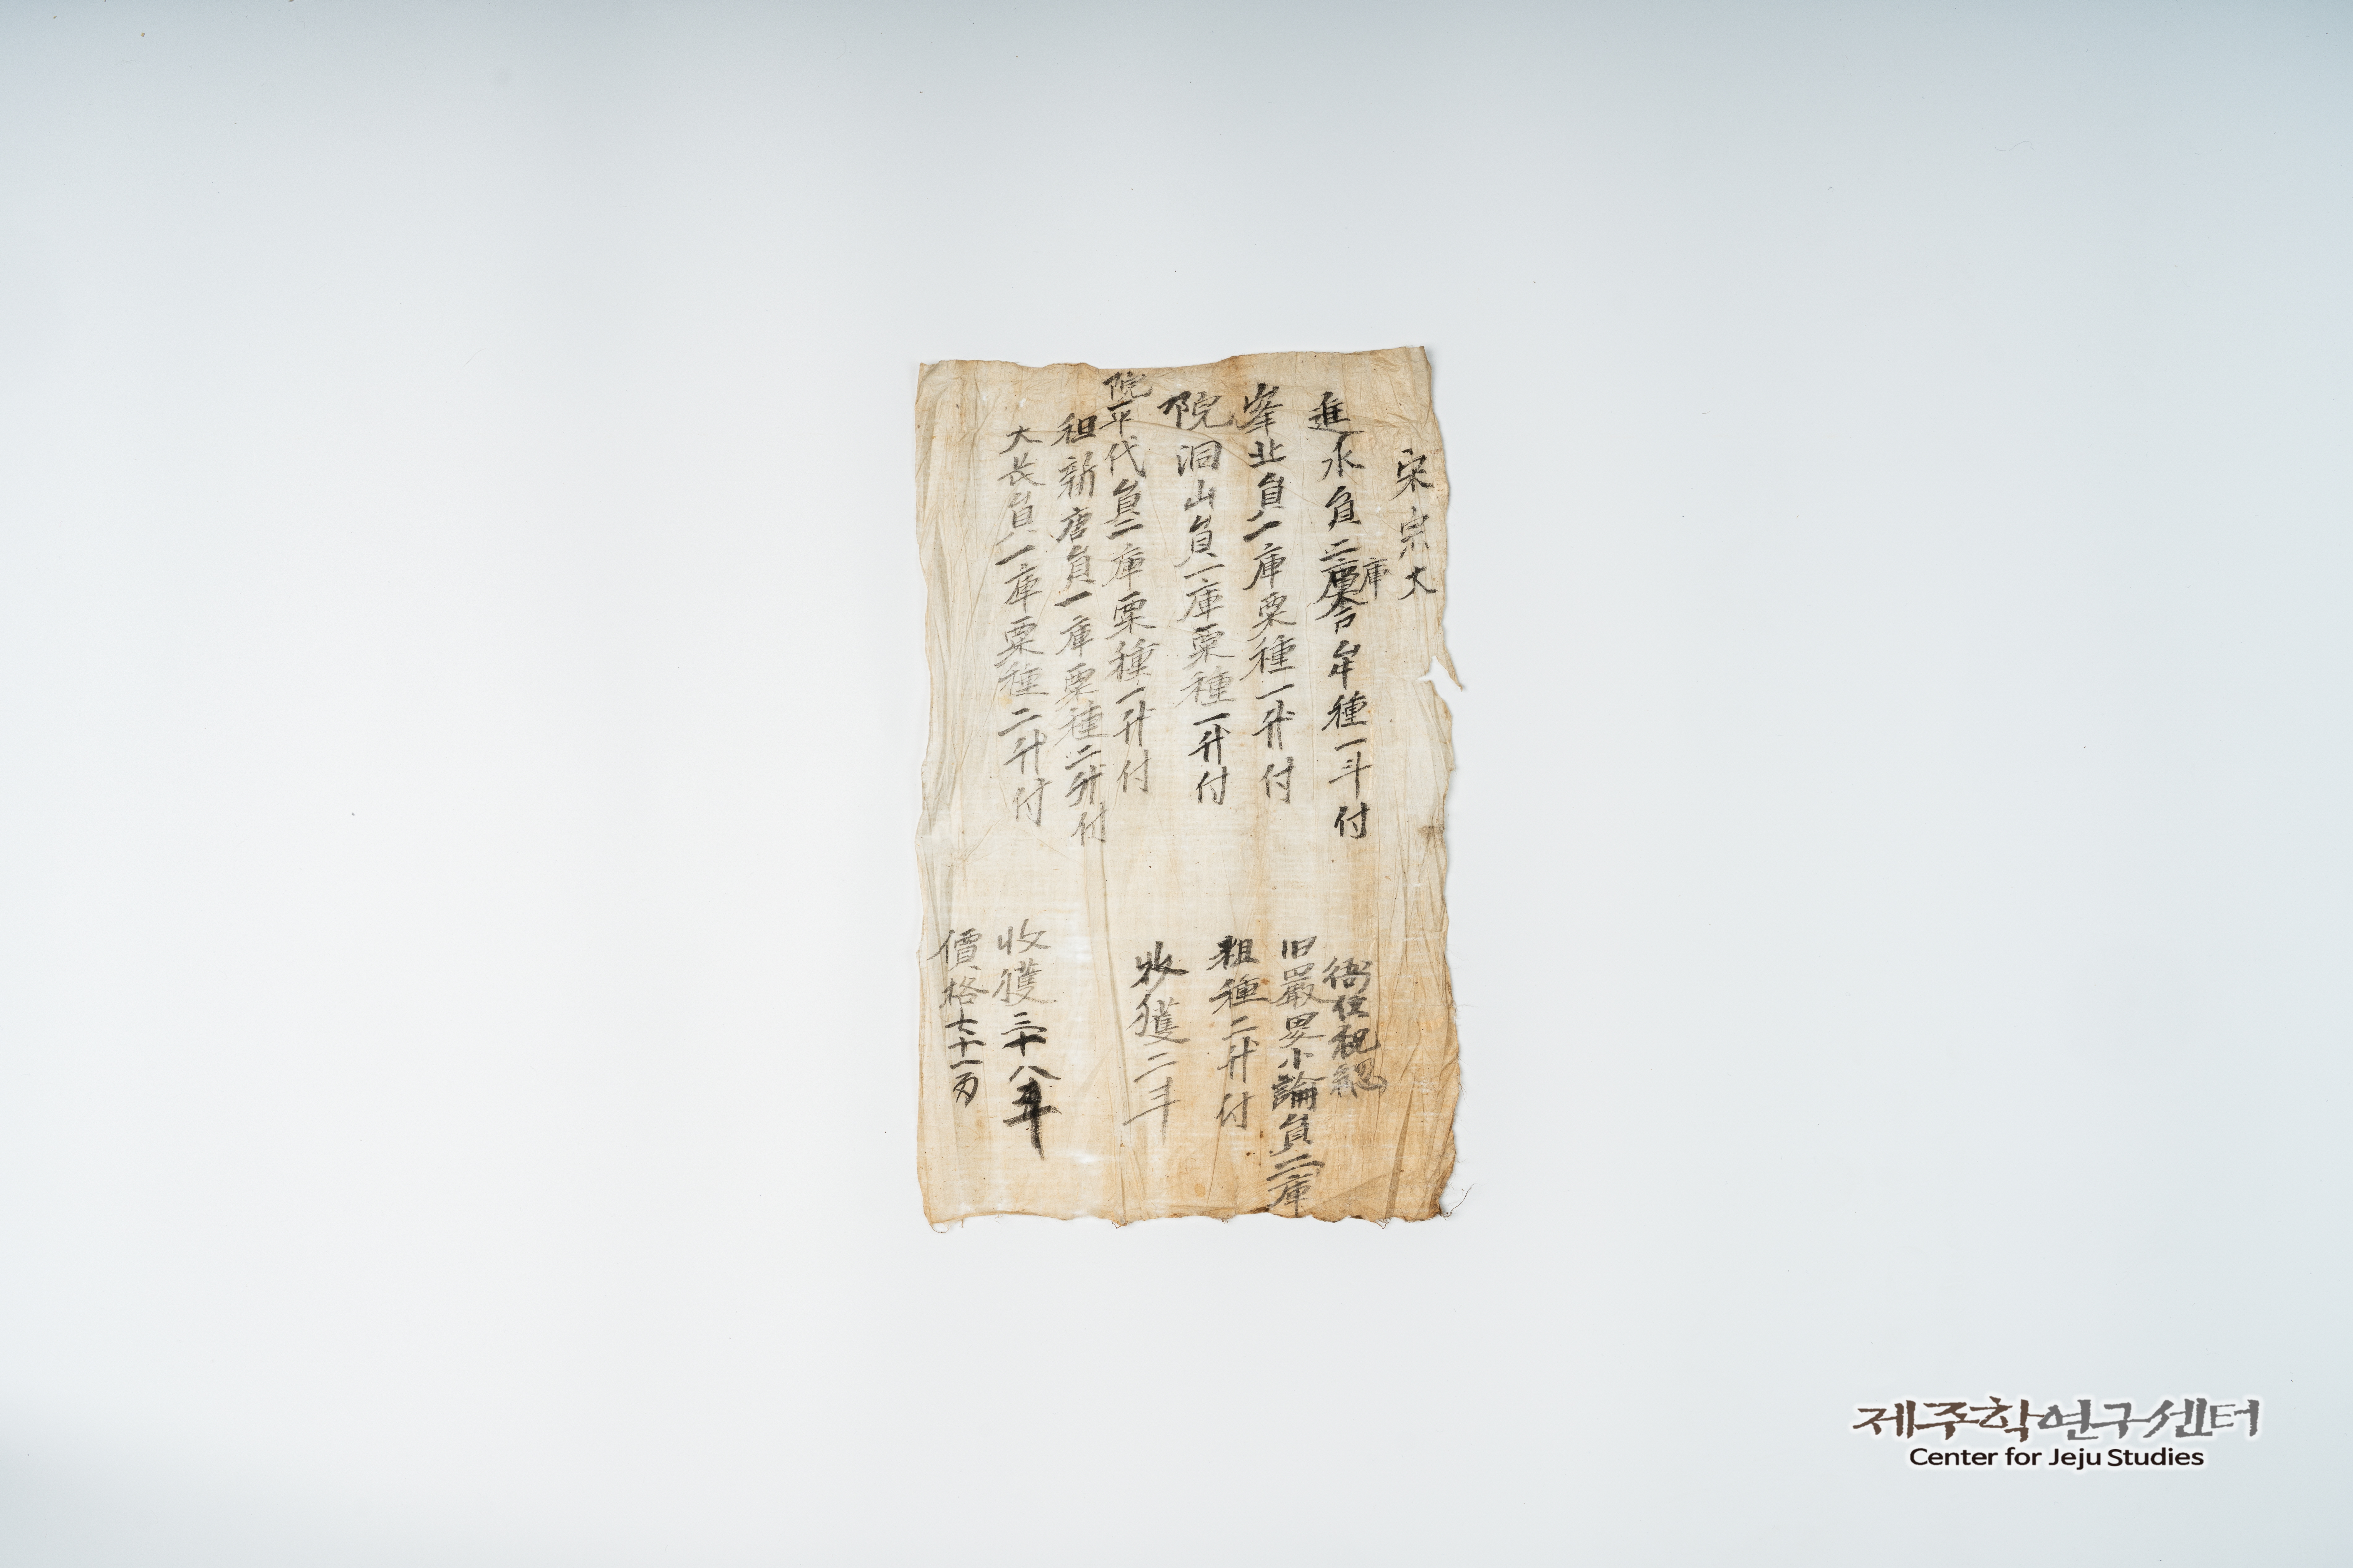 宋宗大
進永負二庫合牟種一斗付
峯北負一庫粟種一升付
院洞山負一庫粟種一升付
院平代負二庫粟種一升付
租新唐負一庫粟種二升付
大長負一庫粟種二升付
旧嚴畏小論負二庫
租種二升付
收獲二斗
收獲三十八斗
價格七十一万
제주학연구센터
Center for Jeju Studies